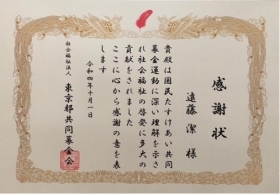 感謝状
遠藤潔様
貴殿は国民たすけあい共同
募金運動に深い理解を示さ
れ社会福祉の啓発に多大の
貢献をされました
ここに心から感謝の意を表
します
令和四年十月一日
社会福祉法人
東京都共同募金会